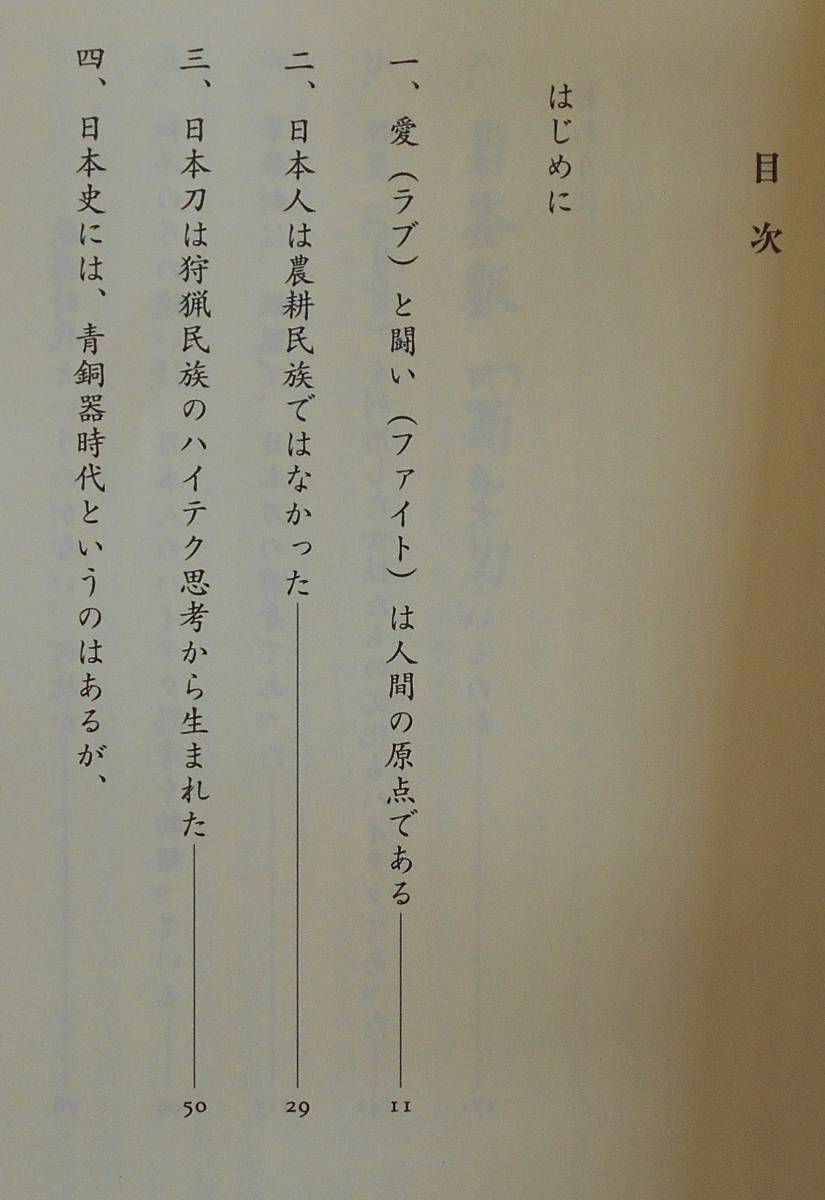 目次
はじめに
一、愛（ラブ）と闘い（ファイト）は人間の原点である――11
二、日本人は農耕民族ではなかった――29
三、日本刀は狩猟民族のハイテク思考から生まれた――50
四、日本史には、青銅器時代というのはあるが、